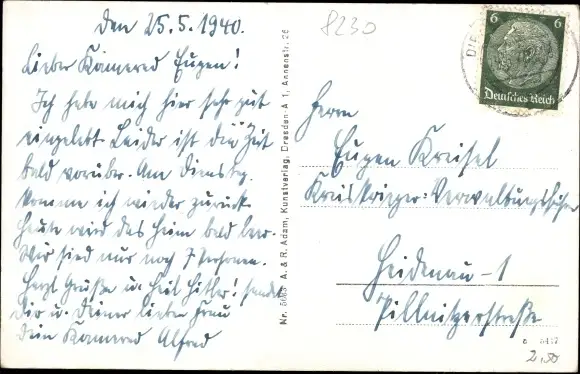 den 25.5.1940.
8230
Lieber Kamerad Eugen!
Ich habe mich hier sehr gut
eingelebt. Leider ist die Zeit
bald vorüber. Am Dienstag
komme ich wieder zurück.
Heute wird das Heim bald leer.
Wir sind nur noch 7 Personen.
Herzl Grüße u. Heil Hitler! sendet
Dir u. Deiner lieben Frau
Dein Kamerad Alfred
Nr. A. & R. Adam, Kunstverlag, Dresden-A 1, Annenstr. 26
6 6
Deutsches Reich
Herrn
Eugen Kreisel
Heidenau-1
Pillnitzerstraße
2,50